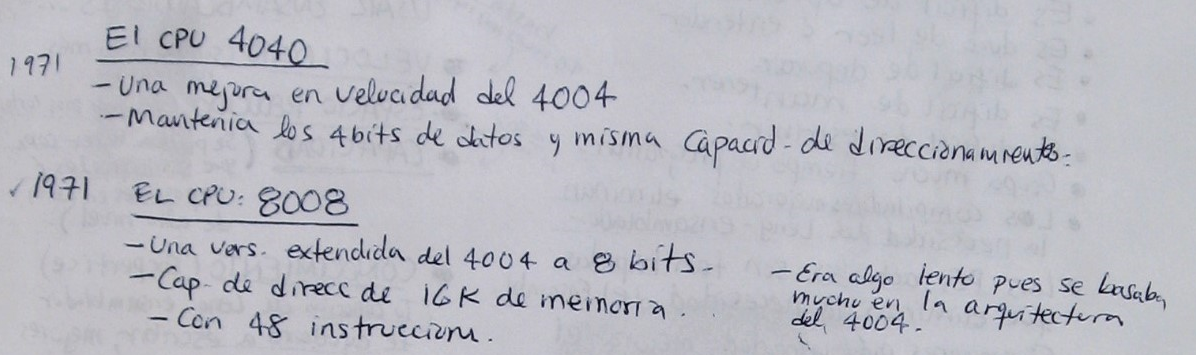 El CPU 4040
1971
- Una mejora en velocidad del 4004
- Mantenia los 4bits de datos y misma Capacid - de direccionamiento.
✓ 1971 EL CPU: 8008
- Una vers. extendida del 4004 a 8 bits.
- Cap. de direcc de 16K de memoria.
- Con 48 instruccion.
- Era algo lento pues se basaba
mucho en la arquitectura
del 4004.